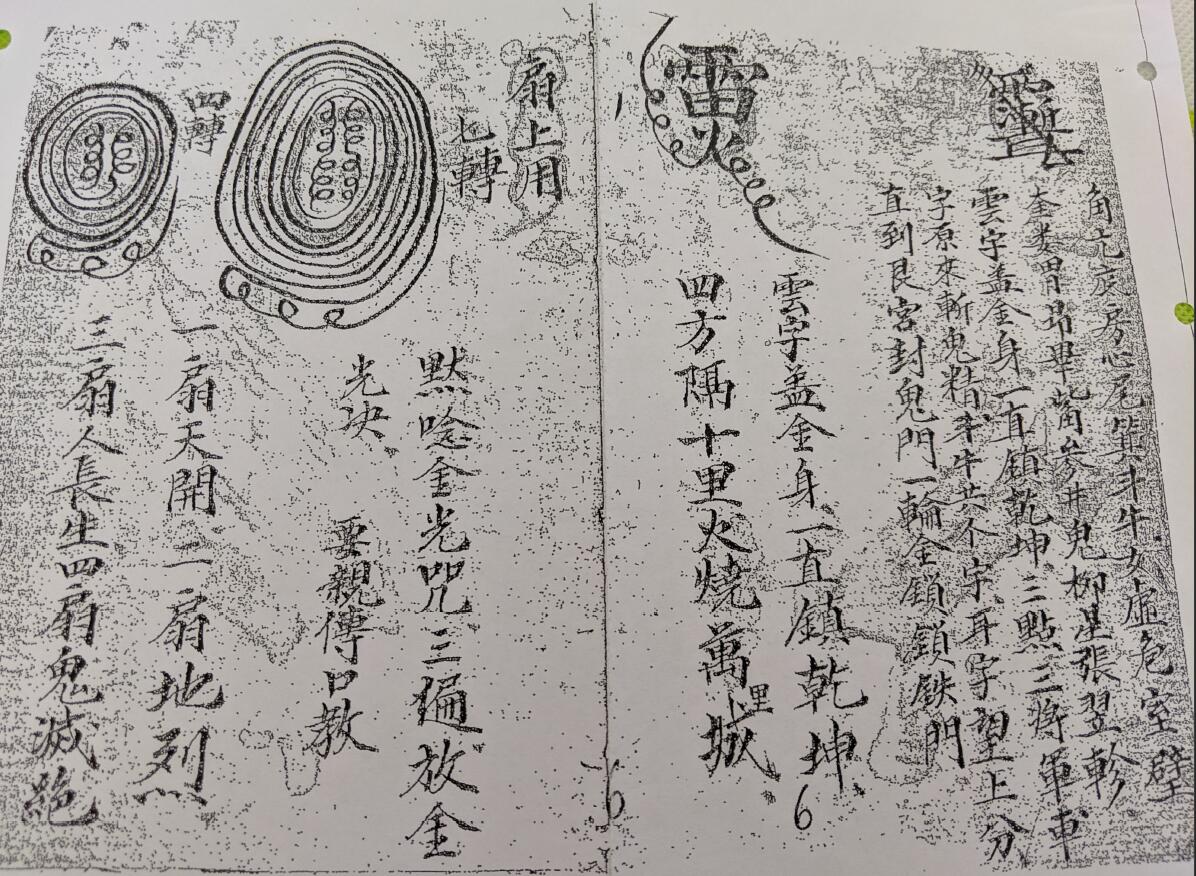 角亢氐房心尾箕斗牛女虛危室壁
奎娄胃昴畢觜參井鬼柳星張翌軫
雲字盖金身一直鎮乾坤三點三將軍車
字原來斬鬼精斗牛共个字耳字望上分
直到艮宮封鬼門一輪金鎖鎖鉄門
雷火
雲字盖金身一直鎮乾坤
6
四方隅十里火燒萬里城
6
扇上用
七轉
默唸金光咒三遍放金
光决
要親傳口教
四轉
一扇天開二扇地烈
三扇人長生四扇鬼滅絕